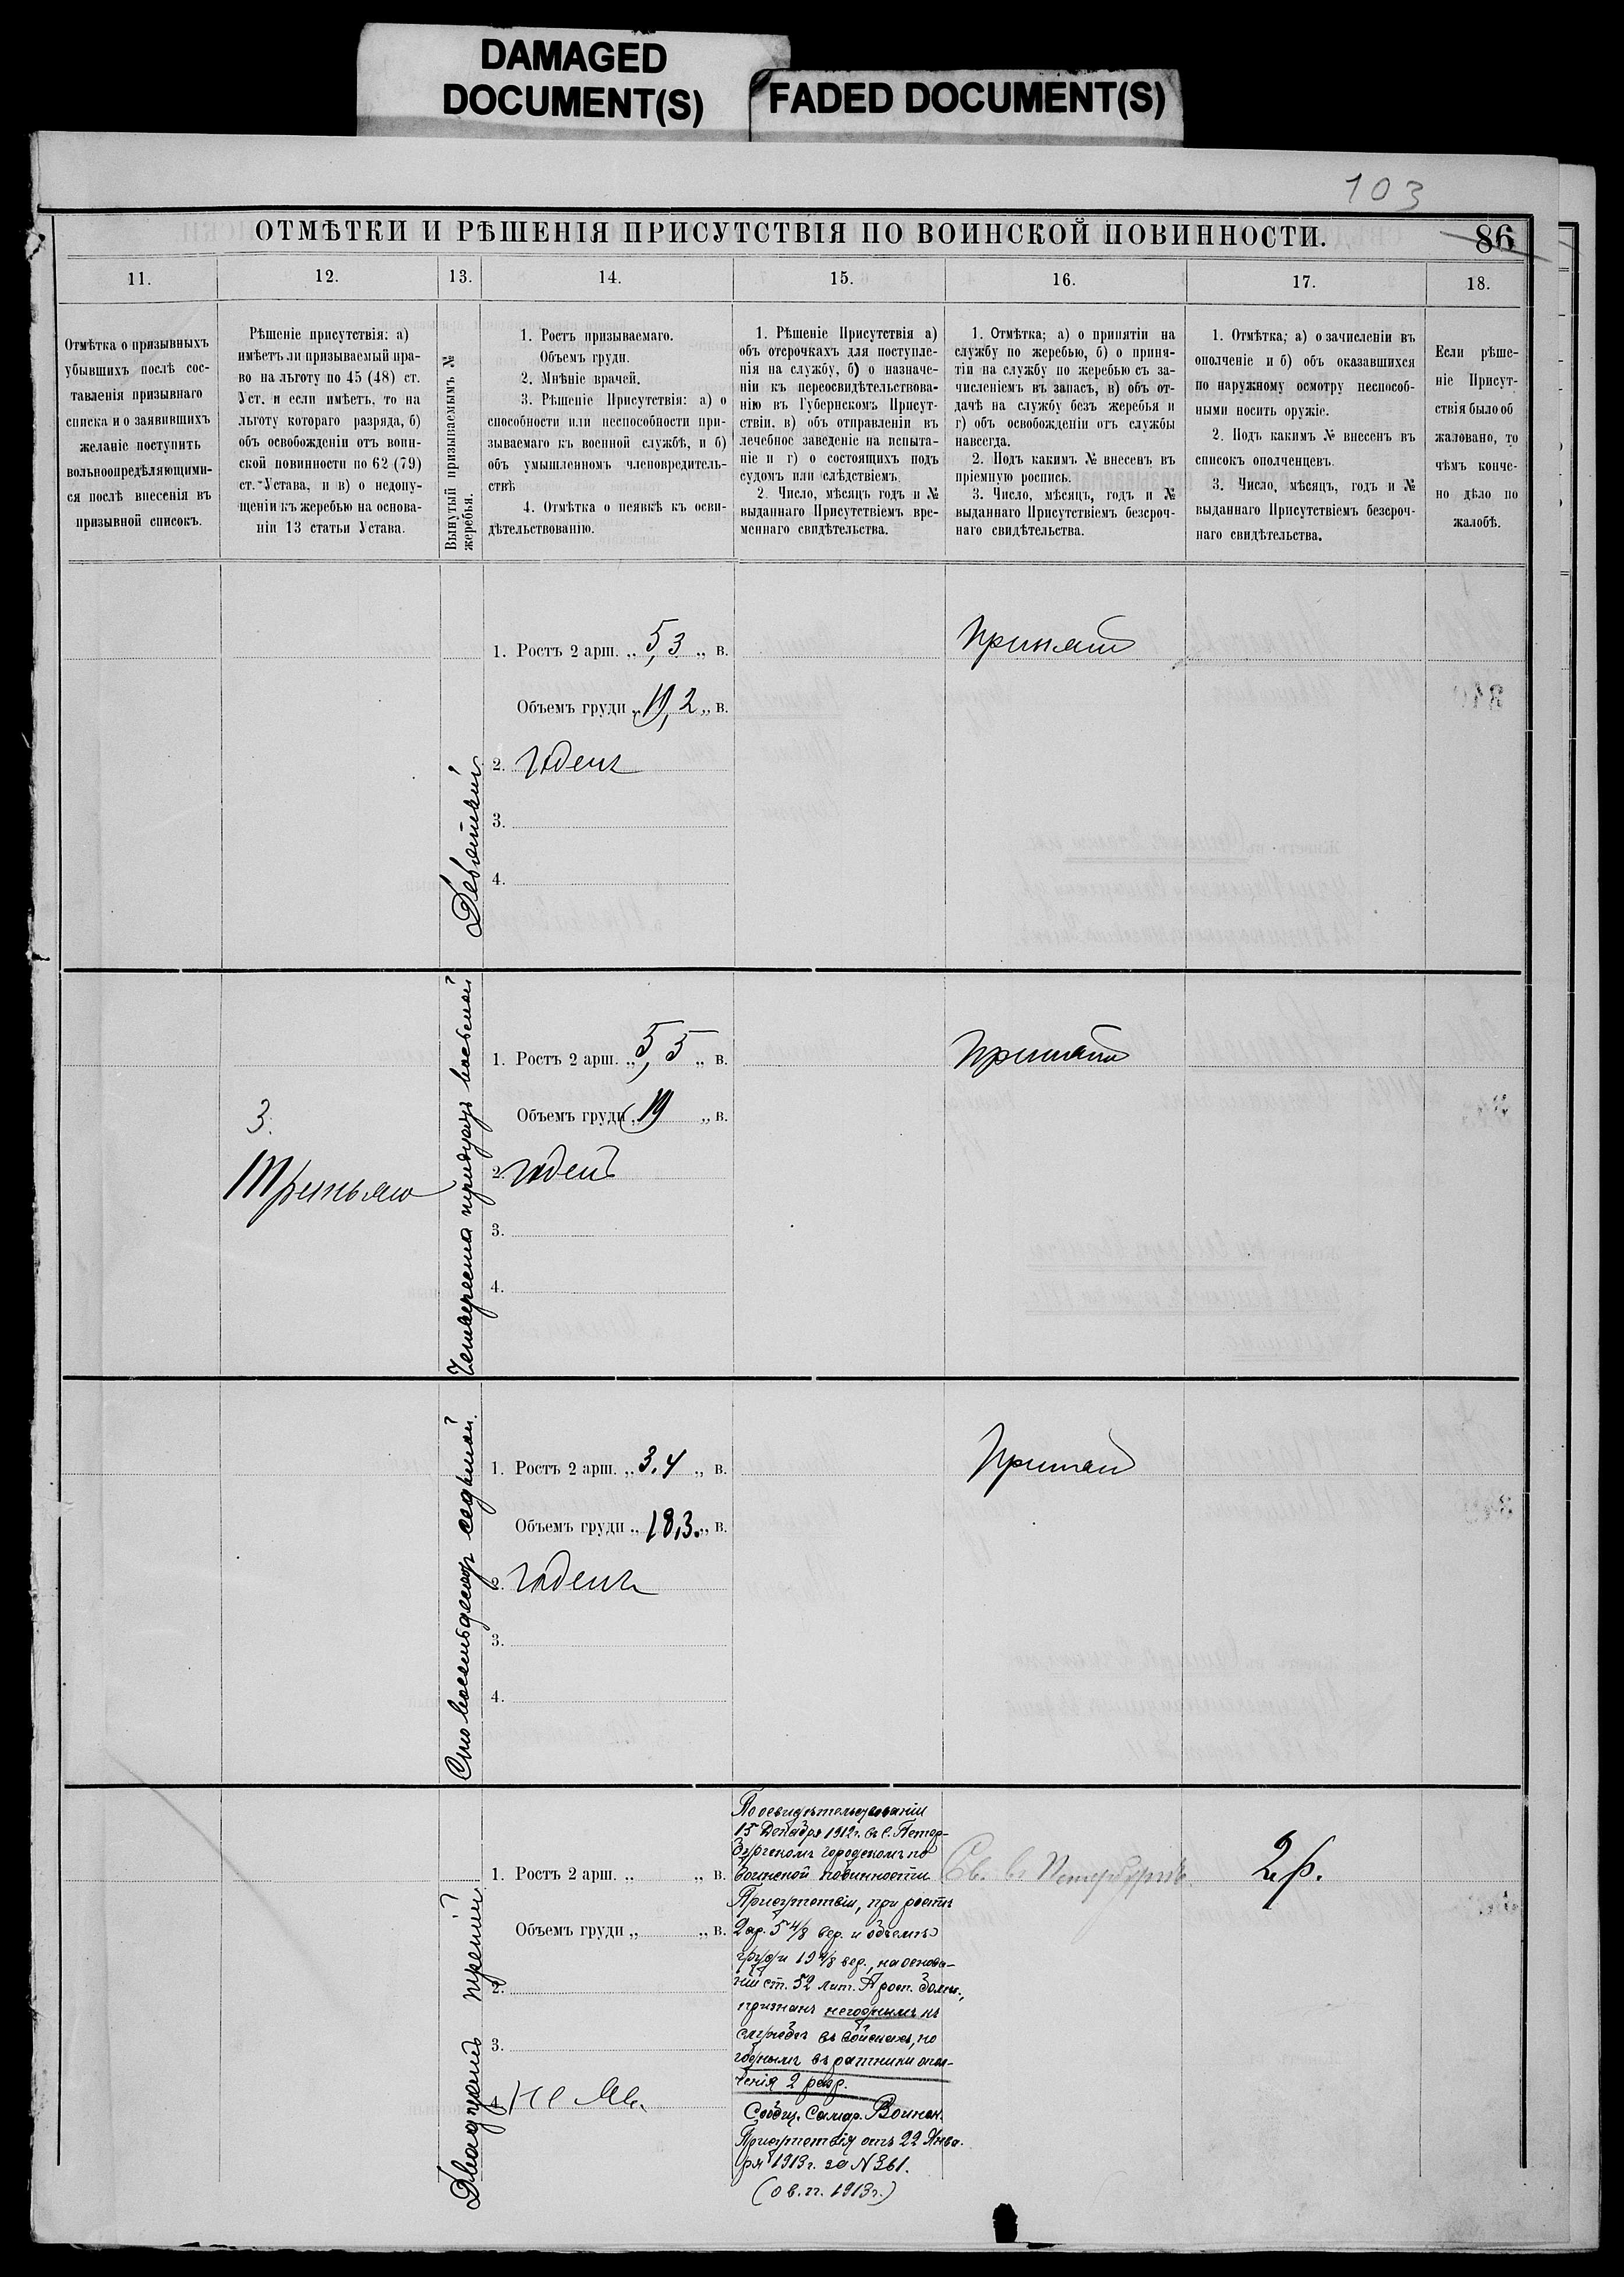 DAMAGED
DOCUMENT(S)
FADED DOCUMENT(S)
103
ОТМѢТКИ И РѢШЕНІЯ ПРИСУТСТВІЯ ПО ВОИНСКОЙ ПОВИННОСТИ.
86
11.
12.
13.
14.
15.
16.
17.
18.
Отмѣтка о призывныхъ
убывшихъ послѣ сос-
тавленія призывнаго
списка и о заявившихъ
желаніе поступить
вольноопредѣляющими-
ся послѣ внесенія въ
призывной списокъ.
Рѣшеніе присутствія: а)
имѣетъ ли призываемый пра-
во на льготу по 45 (48) ст.
Уст. и если имѣетъ, то на
льготу котораго разряда, б)
объ освобожденіи отъ воин-
ской повинности по 62 (79)
ст. Устава, и в) о недопу-
щеніи къ жеребью на основа-
ніи 13 статьи Устава.
Вынутый призываемымъ №
жеребья.
1. Ростъ призываемаго.
Объемъ груди.
2. Мнѣніе врачей.
3. Рѣшеніе Присутствія: а) о
способности или неспособности при-
зываемаго къ военной службѣ, и б)
объ умышленномъ членовредитель-
ствѣ
4. Отмѣтка о неявкѣ къ осви-
дѣтельствованію.
1. Рѣшеніе Присутствія а)
объ отсрочкахъ для поступле-
нія на службу, б) о назначе-
ніи къ переосвидѣтельствова-
нію въ Губернскомъ Присут-
ствіи. в) объ отправленіи въ
лечебное заведеніе на испыта-
ніе и г) о состоящихъ подъ
судомъ или слѣдствіемъ.
2. Число, мѣсяцъ годъ и №
выданнаго Присутствіемъ вре-
меннаго свидѣтельства.
1. Отмѣтка; а) о принятіи на
службу по жеребью, б) о приня-
тіи на службу по жеребью съ за-
численіемъ въ запасъ, в) объ от-
дачѣ на службу безъ жеребья и
г) объ освобожденіи отъ службы
навсегда.
2. Подъ какимъ № внесенъ въ
пріемную роспись.
3. Число, мѣсяцъ, годъ и №
выданнаго Присутствіемъ безсроч-
наго свидѣтельства.
1. Отмѣтка; а) о зачисленіи въ
ополченіе и б) объ оказавшихся
по наружному осмотру неспособ-
ными носить оружіе.
2. Подъ какимъ № внесенъ въ
списокъ ополченцевъ.
3. Число, мѣсяцъ, годъ и №
выданнаго Присутствіемъ безсроч-
наго свидѣтельства.
Если рѣше-
ніе Присут-
ствія было об
жаловано, то
чѣмъ конче-
но дѣло по
жалобѣ.
Девяткій
1. Ростъ 2 арш. „ 5,3 „ в.
Объемъ груди „ 19,2 „ в.
2. Годенъ
3.
4.
Принятъ
3.
Третьяго
Четыреста тридцать восьмой
1. Ростъ 2 арш. „ 5,5 „ в.
Объемъ груди „ 19 „ в.
2. Годенъ
3.
4.
Принятъ
Сто восемьдесятъ седьмой.
1. Ростъ 2 арш. „ 3.4 „ в.
Объемъ груди „ 18,3. „ в.
2. Годенъ
3.
4.
Принятъ
Двадцать третій
1. Ростъ 2 арш. „ „ в.
Объемъ груди „ „ в.
2.
3.
4. Не яв.
По освидѣтельствованіи
15 Декабря 1912 г. въ С. Петер-
бургскомъ городскомъ по
воинской повинности
Присутствіи, при ростѣ
2 ар. 5 4/8 вер. и объемѣ
груди 19 4/8 вер., на основа-
ніи ст. 52 лит. А росп. болѣз.,
признанъ негоднымъ къ
службѣ въ войскахъ, но
годнымъ въ ратники опол-
ченія 2 разр.
Сообщ. Самар. Воинск.
Присутствія отъ 22 Янва-
ря 1913 г. за № 361.
(о в. п. 1913 г.)
Св. въ Петербургѣ.
2 р.